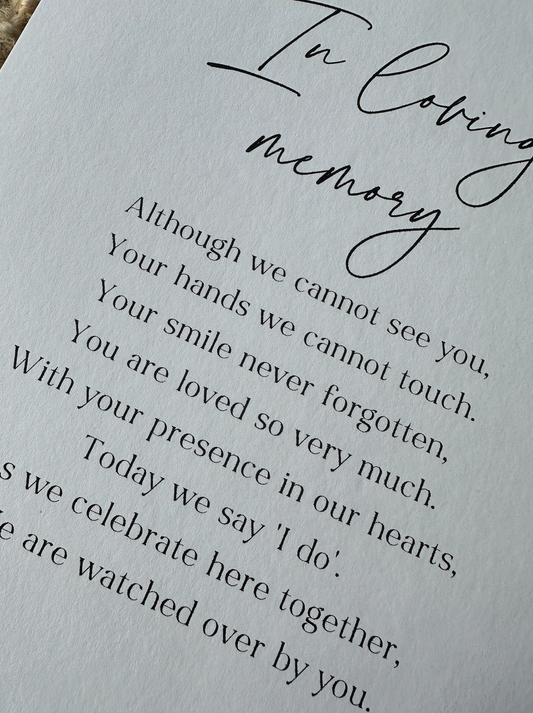 In loving
memory
Although we cannot see you,
Your hands we cannot touch.
Your smile never forgotten,
You are loved so very much.
With your presence in our hearts,
Today we say 'I do'.
s we celebrate here together,
e are watched over by you.